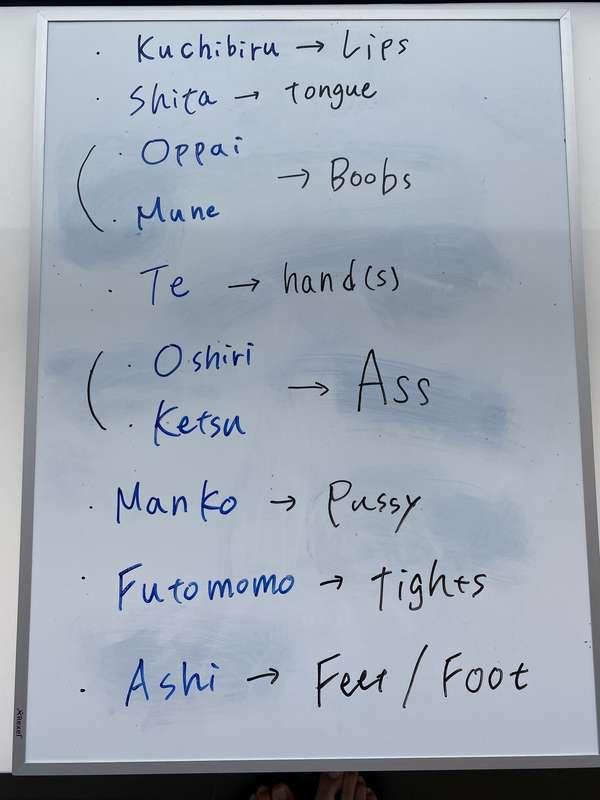 · Kuchibiru → Lips
· Shita → tongue
· Oppai
→ Boobs
· Mune
· Te → hand(s)
· Oshiri
→ Ass
· Ketsu
· Manko → Pussy
· Futomomo → tights
· Ashi → Feet / Foot